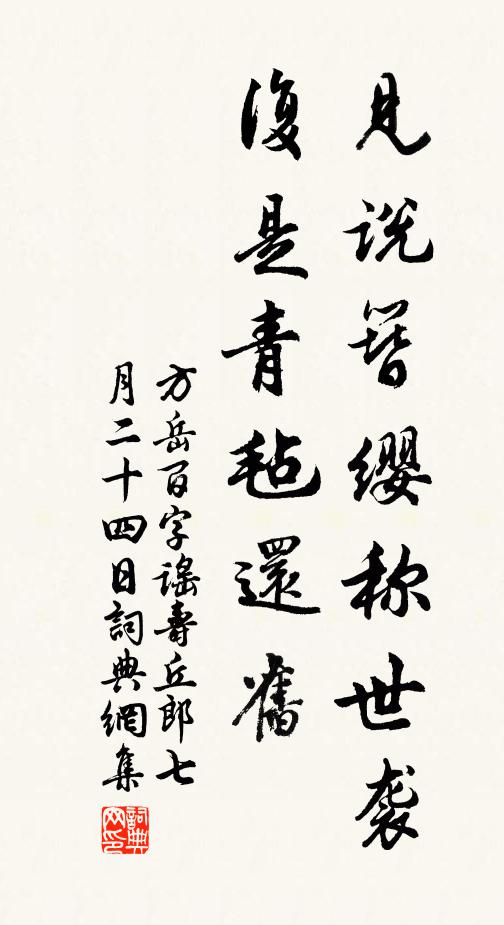 見説簪纓称世袭
復是青氈還舊
方岳百字謠壽丘郎七
月二十四日詞典網集
詞典网印